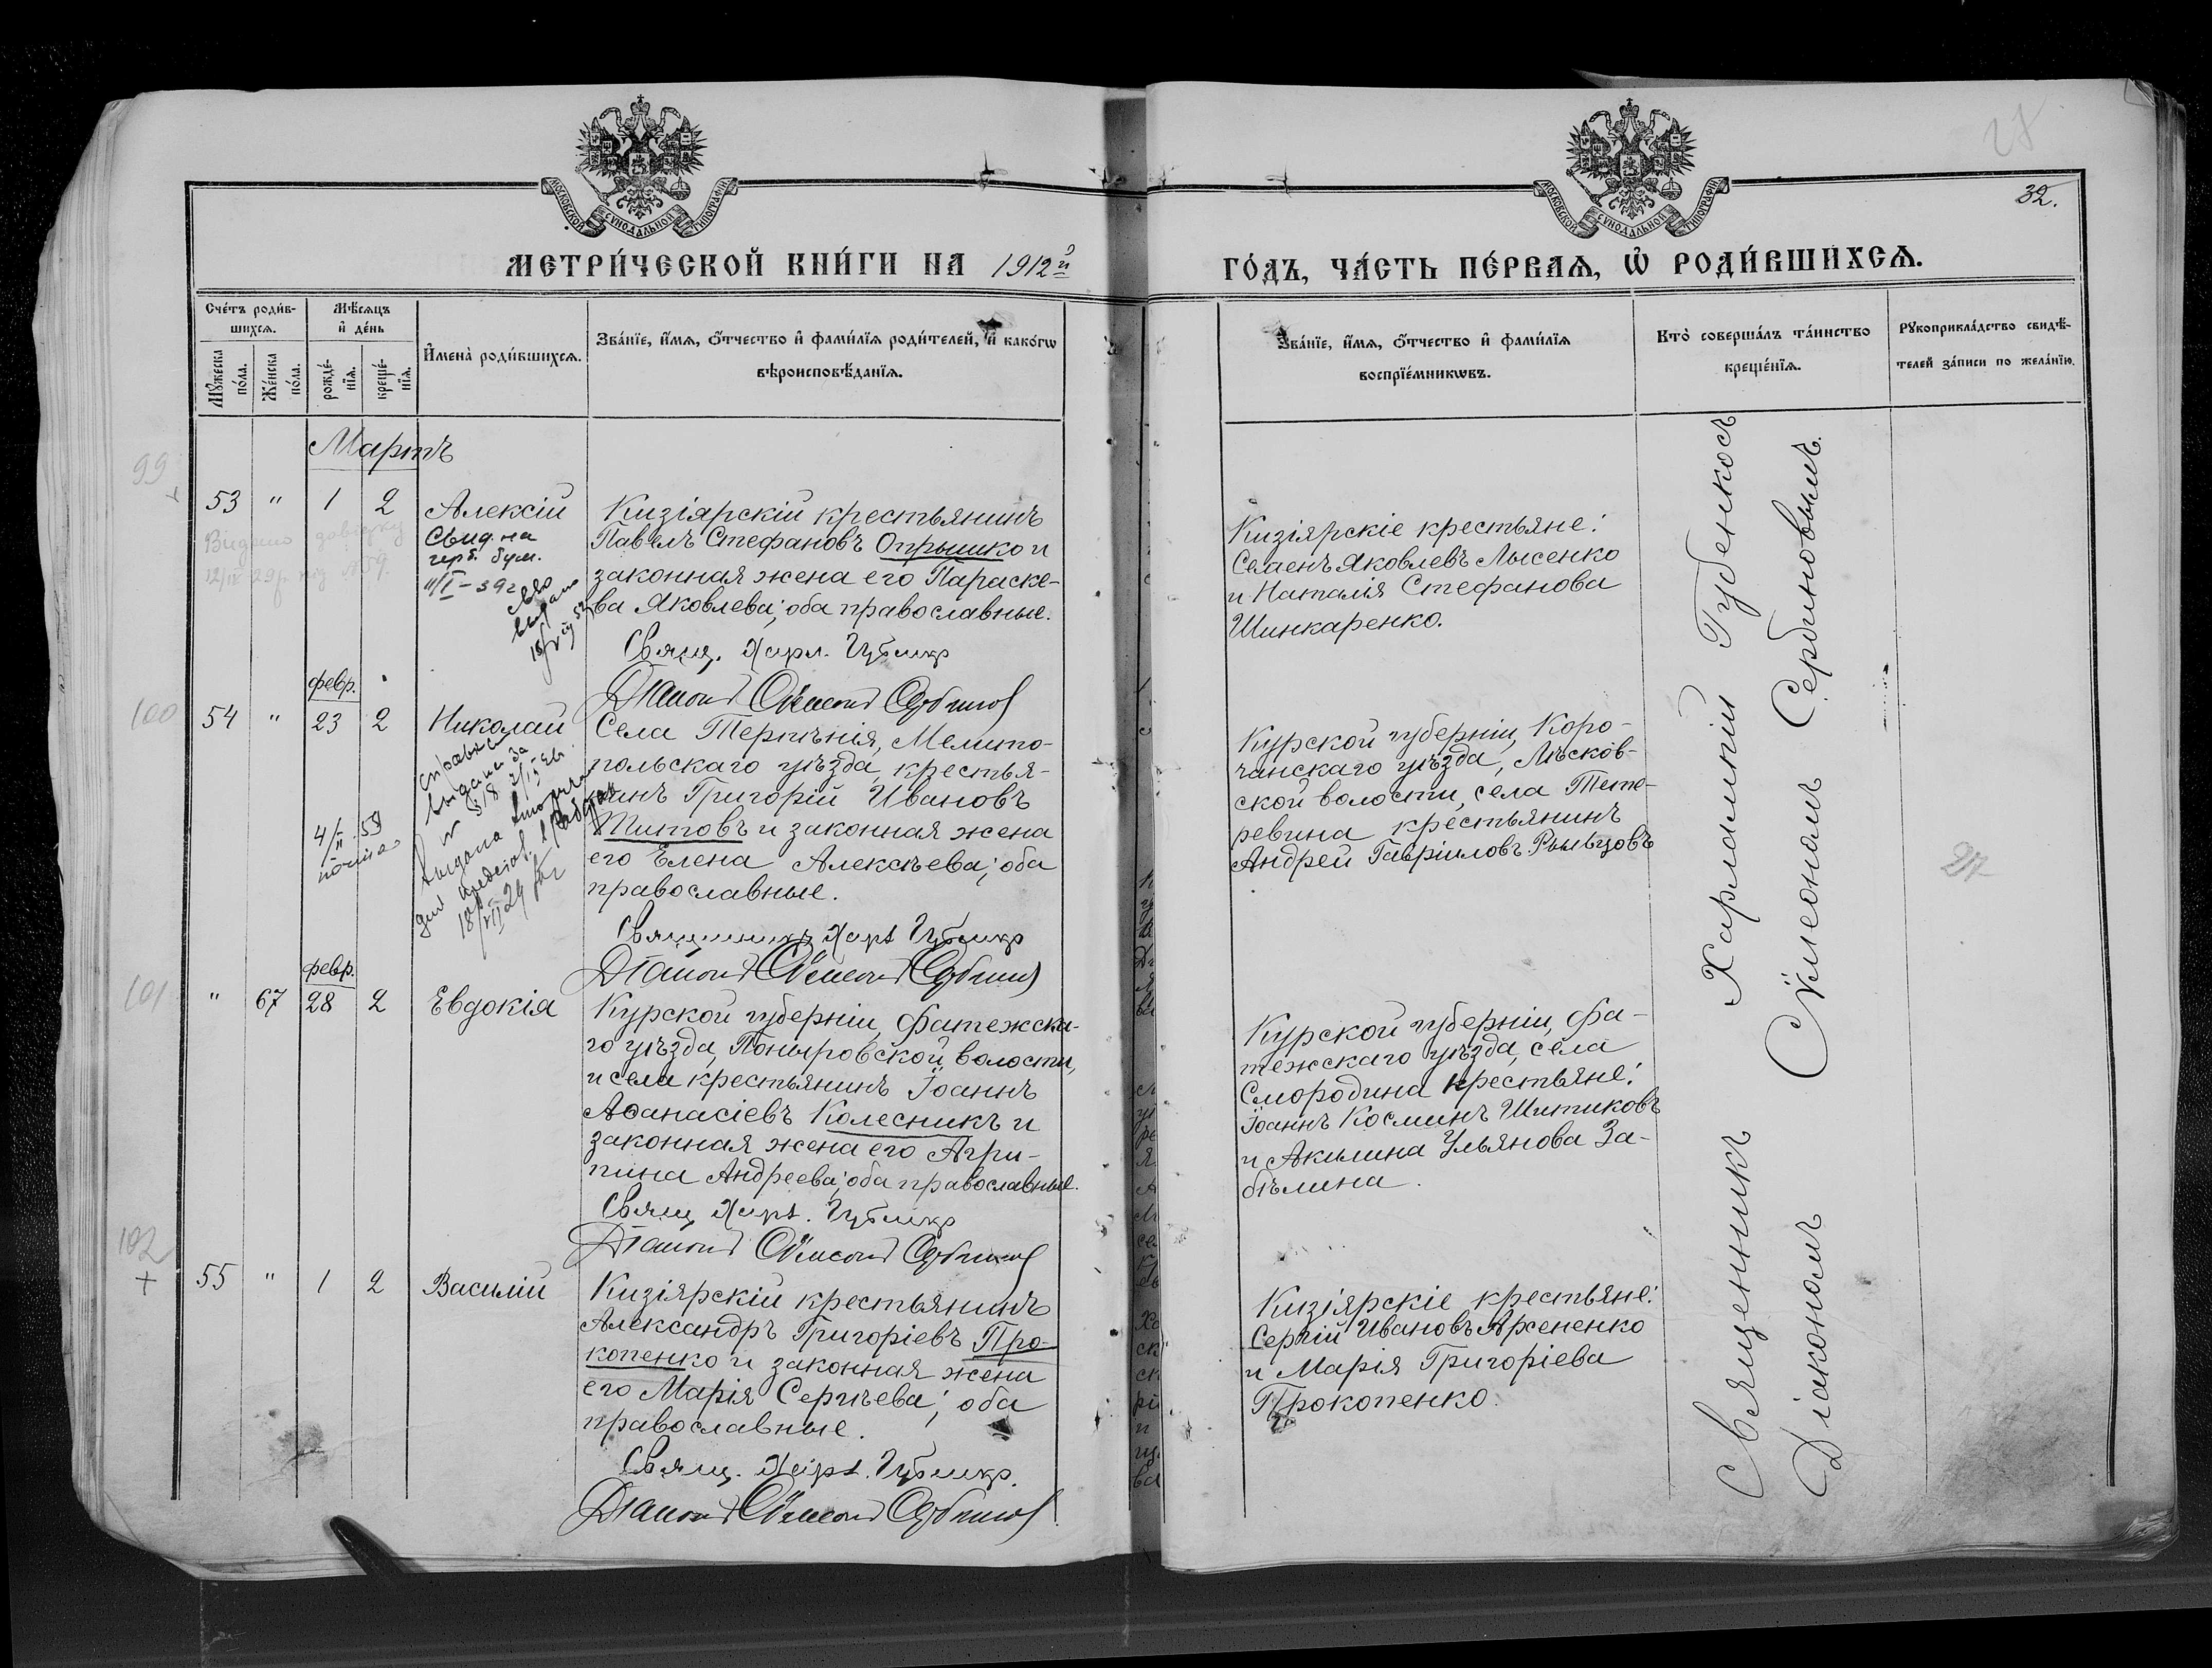 28
32.
МОСКОВСКОЙ СѴНОДАЛЬНОЙ ТИПОГРАФІИ
МОСКОВСКОЙ СѴНОДАЛЬНОЙ ТИПОГРАФІИ
МЕТРИ́ЧЕСКОЙ КНИ́ГИ НА 1912й
ГО́ДЪ, ЧА́СТЬ ПЕ́РВАѦ, Ѽ РОДИ́ВШИХСѦ.
Сче́тъ роди́в-
шихсѧ.
Мꙋ́жеска по́ла.
Же́нска по́ла.
Мѣ́сѧцъ
и҆ де́нь
рожде́-
нїѧ.
креще́-
нїѧ.
И҆мена̀ роди́вшихсѧ.
Зва́нїе, и҆́мѧ, ѻ҆́тчество и҆ фами́лїѧ роди́телей, и҆ како́гѡ
вѣроисповѣ́данїѧ.
Зва́нїе, и҆́мѧ, ѻ҆́тчество и҆ фами́лїѧ
воспрїе́мникѡвъ.
Кто̀ соверша́лъ та́инство
креще́нїѧ.
Рꙋкоприкла́дство свидѣ́-
телей за́писи по жела́нїю.
Мартъ
99
53 " 1 2 Алексій
Видано довідку
12/IV 29 р. під №
Свид. на
герб. бум.
11/I - 39 г
Кизіярскій крестьянинъ
Павелъ Стефановъ Опрышко и
законная жена его Параске-
ва Яковлева; оба православные.
Свящ. Харл. Губенко
Діаконъ Сѵмеонъ Сербиновъ
Кизіярскіе крестьяне:
Семенъ Яковлевъ Лысенко
и Наталія Стефанова
Шинкаренко.
февр.
100
54 " 23 2 Николай
4/II 59
почта
18/VII 29
Села Терпѣнія, Мелито-
польскаго уѣзда, крестья-
нинъ Григорій Ивановъ
Титовъ и законная жена
его Елена Алексѣева; оба
православные.
Священникъ Харл Губенко
Діаконъ Сѵмеонъ Сербиновъ
Курской губерніи, Коро-
чанскаго уѣзда, Лѣсков-
ской волости, села Тете-
ревина крестьянинъ
Андрей Гавріиловъ Рыльцовъ
27
февр.
101
" 67 28 2 Евдокія
Курской губерніи, Фатежска-
го уѣзда, Поныровской волости,
и села крестьянинъ Іоаннъ
Аѳанасіевъ Колесникъ и
законная жена его Агри-
пина Андреева; оба православные.
Свящ Харл. Губенко
Діаконъ Сѵмеонъ Сербиновъ
Курской губерніи, Фа-
тежскаго уѣзда, села
Смородина крестьяне:
Іоаннъ Косминъ Шитиковъ
и Акилина Ульянова За-
бѣлина.
102
55 " 1 2 Василій
Кизіярскій крестьянинъ
Александръ Григоріевъ Про-
копенко и законная жена
его Марія Сергѣева; оба
православные.
Свящ. Харл. Губенко.
Діаконъ Сѵмеонъ Сербиновъ
Кизіярскіе крестьяне:
Сергій Ивановъ Арсененко
и Марія Григоріева
Прокопенко.
Священникъ Харлампій Губенко съ
Діакономъ Сѵмеономъ Сербиновымъ.